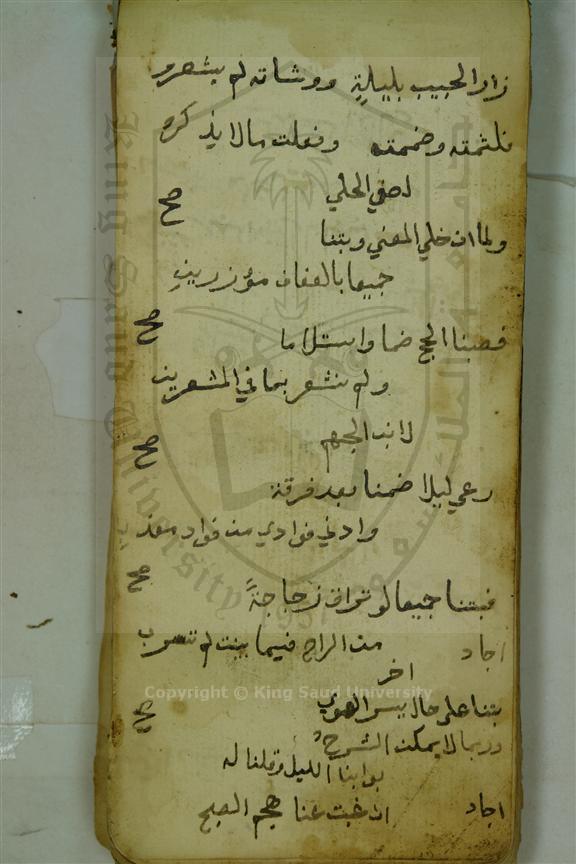 زار الحبيب بليلةٍ ووشاته لم يشعرو
فلثمته وضممته وفعلت ما لا يذكره
لصفي الحلي
صح
ولما ان خلي المغني وبتنا
جميعا بالعفاف مؤزرينِ
قصينا الحج ضما واستلاما
صح
ولم نشعر بما في المشعرين
لابن الجهم
صح
رعي ليلا ضمنا بعد فرقة
وادني فوادي من فواد معذبِ
فبتنا جميعا لو تراق زجاجةً
صح
من الراح فيما بيننا لم تسرب
اجاد
اخر
بتنا علي حال يسر الهوي
صح
وربما لا يمكن الشرح
بوابنا الليل وقلنا له
ان غبت عنا هجم الصبح
اجاد
Copyright © King Saud University